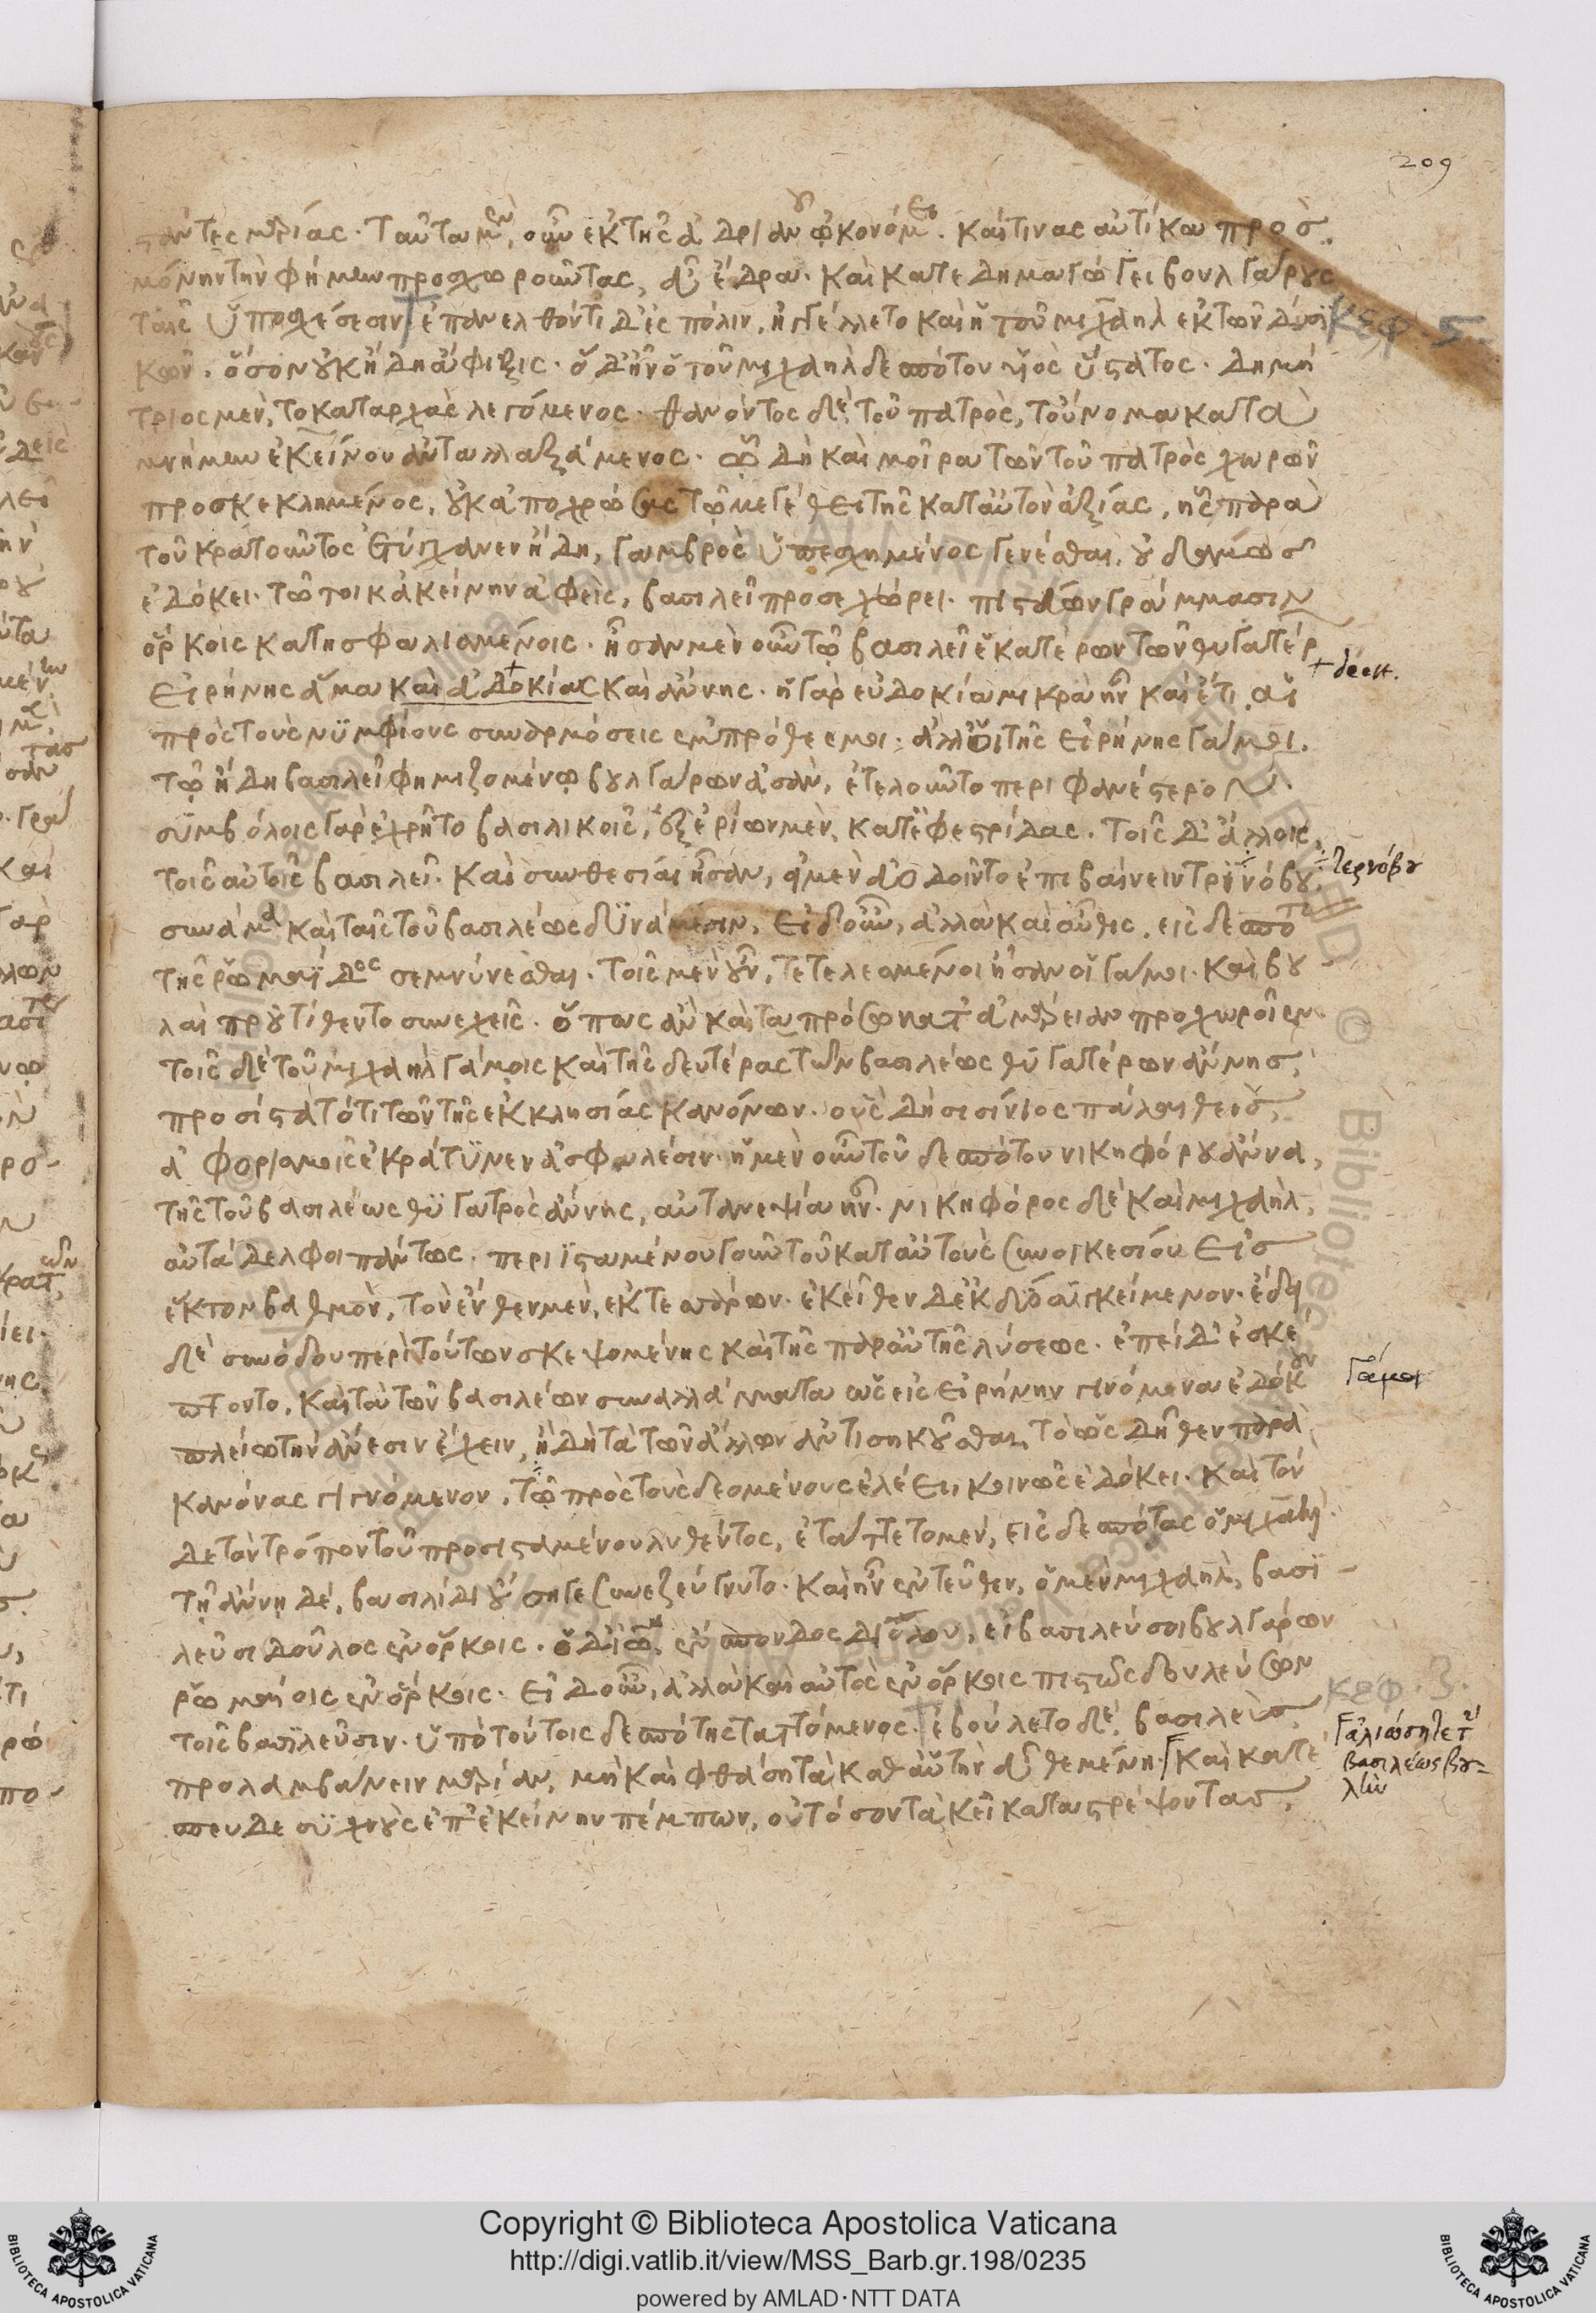 209
σάντες μερίας. ταῦτα μὲν οὖν ἐκ τῆς ἀδριανοῦ ᾠκονόμει. καί τινας αὐτίκα πρὸς
μόνην τὴν φήμην προσχωροῦντας, εὖ ἔδρα. καὶ κατεδημαγώγει βουλγάρους
ταῖς ὑποσχέσεσιν. ἐπανελθόντι δ' εἰς πόλιν, ἠγγέλλετο καὶ ἡ τοῦ μιχαὴλ ἐκ τῶν δυτι
κεφ. ς.
κῶν. ὅσον οὐκ ἤδη ἄφιξις. ὃ δ' ἦν ὁ τοῦ μιχαὴλ δεσπότου υἱὸς ὕστατος. δημή
τριος μὲν, τὸ καταρχὰς λεγόμενος. θανόντος δὲ τοῦ πατρὸς, τοὔνομα κατὰ
μνήμην ἐκείνου ἀνταλλαξάμενος. ᾧ δὴ καὶ μοῖρα τῶν τοῦ πατρὸς χωρῶν
προσκεκλημένος, οὐκ ἀποχρώσης τῷ μεγέθει τῆς κατ' αὐτὸν ἀξίας, ἧς παρὰ
τοῦ κρατοῦντος ἐτύγχανεν ἤδη, γαμβρὸς ὑπεσχημένος γενέσθαι,
ἐδόκει. τῷ τοι κἀκείνην ἀφεὶς, βασιλεῖ προσεχώρει. πιστωθεὶς γράμμασιν
ὅρκοις κατησφαλισμένοις. ἦσαν μὲν οὖν τῷ βασιλεῖ ἑκατέρων τῶν θυγατέρ
εἰρήνης ἅμα καὶ εὐδοκίας καὶ ἄννης. ἡ γὰρ εὐδοκία μικρὰ ἦν καὶ ἔτι. αἱ
+ deest.
πρὸς τοὺς νυμφίους συναρμόσεις ἐμπρόθεσμοι. ἀλλ' οἱ τῆς εἰρήνης γάμοι.
τῷ ἤδη βασιλεῖ φημιζομένῳ βουλγάρων ἀσὰν, ἐτελοῦντο περιφανέστερον.
συμβόλοις γὰρ ἐχρῆτο βασιλικοῖς, ἐξ ἐρίων μὲν κατ' ἐφεστρίδας. τοῖς δ' ἄλλοις,
τοῖς αὐτοῖς βασιλεῖ. καὶ συνθεσίαι ἦσαν, εἰ μὲν εὐοδοῖντο ἐπιβαίνειν τρινόβου
τερνόβου
συνάμα καὶ ταῖς τοῦ βασιλέως δυνάμεσιν, εἰ δ' οὖν, ἀλλὰ καὶ αὖθις, εἰς δεσπότην
τῆς ῥωμαΐδος σεμνύνεσθαι. τοῖς μὲν οὖν, τετελεσμένοι ἦσαν οἱ γάμοι. καὶ βου
λαὶ προὐτίθεντο συνεχεῖς. ὅπως ἂν καὶ τὰ πρόσω κατ' εὐμάρειαν προχωροῖεν.
τοῖς δὲ τοῦ μιχαὴλ γάμοις καὶ τῆς δευτέρας τῶν βασιλέως θυγατέρων ἄννης,
προσίστατό τι τῶν τῆς ἐκκλησίας κανόνων. οὓς δὴ σισίννιος πάλαι θεὶς,
ἀφορισμοῖς ἐκράτυνεν ἀσφαλέσιν. ἡ μὲν οὖν τοῦ δεσπότου νικηφόρου ἄννα,
τῆς τοῦ βασιλέως θυγατρὸς ἄννης, αὐτανεψία ἦν. νικηφόρος δὲ καὶ μιχαὴλ,
αὐτάδελφοι πάντως. περιϊσταμένου γοῦν τοῦ κατ' αὐτοὺς συνοικεσίου εἰς
ἕκτον βαθμὸν, τὸν ἔνθεν μὲν, ἐκ τεσσάρων. ἐκεῖθεν δ' ἐκ δύο συγκείμενον. ἔδει
δὲ συνόδου περὶ τούτων σκεψομένης καὶ τῆς παρ' αὐτῆς λύσεως. ἐπεὶ δ' ἐσκέ
πτοντο, καὶ τὰ τῶν βασιλέων συναλλάγματα ὡς εἰς εἰρήνην γινόμενα ἐδόκουν
γάμοι
πλείστην ἄνεσιν ἔχειν, ἢ δὴ τὰ τῶν ἄλλων ἀντισηκοῦσθαι, τὸ ὡς δῆθεν παρὰ
κανόνας γινόμενον, τῷ πρὸς τοὺς δεομένους ἐλέει, κοινῶς ἐδόκει. καὶ τόν
δε τὸν τρόπον τοῦ προσισταμένου λυθέντος, ἐτάττετο μὲν, εἰς δεσπότας ὁ μιχαήλ.
τῇ ἄννῃ δέ, βασιλίδι οὔσῃ γε συνεζεύγνυτο. καὶ ἦν ἐντεῦθεν, ὁ μὲν μιχαὴλ, βασι-
λεῦσι δοῦλος ἐν ὅρκοις. ὁ δ' ἰωάννης ἔνσπονδος δι' ὅλου, εἰ βασιλεύσοι βουλγάρων
ῥωμαίοις ἐν ὅρκοις. εἰ δ' οὖν, ἀλλὰ καὶ αὐτὸς ἐν ὅρκοις πιστῶς δουλεύσων
τοῖς βασιλεῦσιν. ὑπὸ τούτοις δεσπότης ταττόμενος. ἐβούλετο δὲ βασιλεὺς
κεφ. ζ.
προλαμβάνειν μαρίαν, μὴ καὶ φθάσῃ τὰ καθ' αὑτὴν εὖ θεμένη. καὶ κατέ
γαλιώσηλε τ
βασιλέως βου=
λὴν
σπευδε συχνοὺς ἐπ' ἐκείνην πέμπων, οὐ τόσον τἀκεῖ καταστρέψοντας,
Copyright © Biblioteca Apostolica Vaticana
http://digi.vatlib.it/view/MSS_Barb.gr.198/0235
powered by AMLAD·NTT DATA
BIBLIOTECA APOSTOLICA VATICANA
BIBLIOTECA APOSTOLICA VATICANA